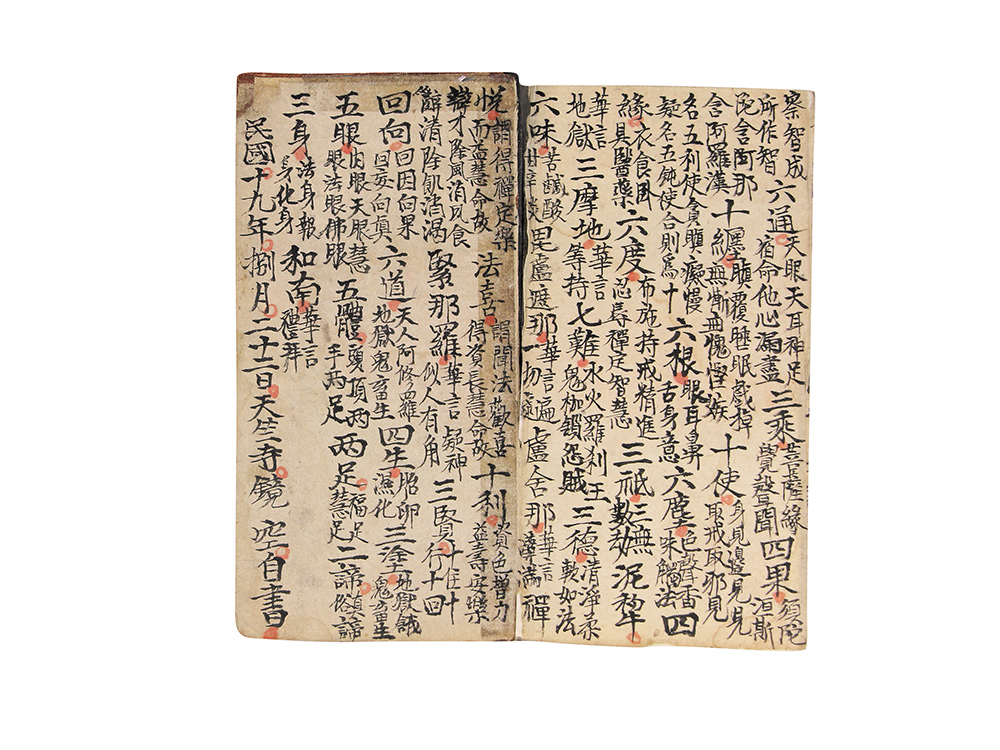 察智成所作智 六通 天眼天耳神足宿命他心漏盡 三乘 菩薩緣覺聲聞 四果 須陀洹斯
陀含阿那含阿羅漢 十纏 瞋覆睡眠戲掉無慚無愧慳嫉 十使 身見邊見見取戒取邪見
名五利使貪瞋癡慢疑名五鈍使合則爲十 六根 眼耳鼻舌身意 六塵 色聲香味觸法 四
緣 衣食臥具醫藥 六度 布施持戒精進忍辱禪定智慧 三祇 三無數劫 泥犂
華言地獄 三摩地 華言等持 七難 水火羅刹王鬼枷鎖怨賊 三德 清淨柔軟如法
六味 苦鹹酸甘辛淡 毘盧遮那 華言遍一切 盧舍那 華言淨滿 禪
悅 謂得禪定樂而益慧命故 法喜 謂聞法歡喜得資長慧命故 十利 資色增力益壽安樂
辯才除風消夙食辭清除飢消渴 緊那羅 華言疑神似人有角 三賢 十住十行十回
回向 回因向果回妄向真 六道 天人阿修羅地獄鬼畜生 四生 胎卵濕化 三塗 地獄餓鬼畜生
五眼 肉眼天眼慧眼法眼佛眼 五體 頭頂兩手兩足 兩足 福足慧足 二諦 真諦俗諦
三身 法身報身化身 和南 華言禮拜
民國十九年捌月二十二日天竺寺鏡空自書